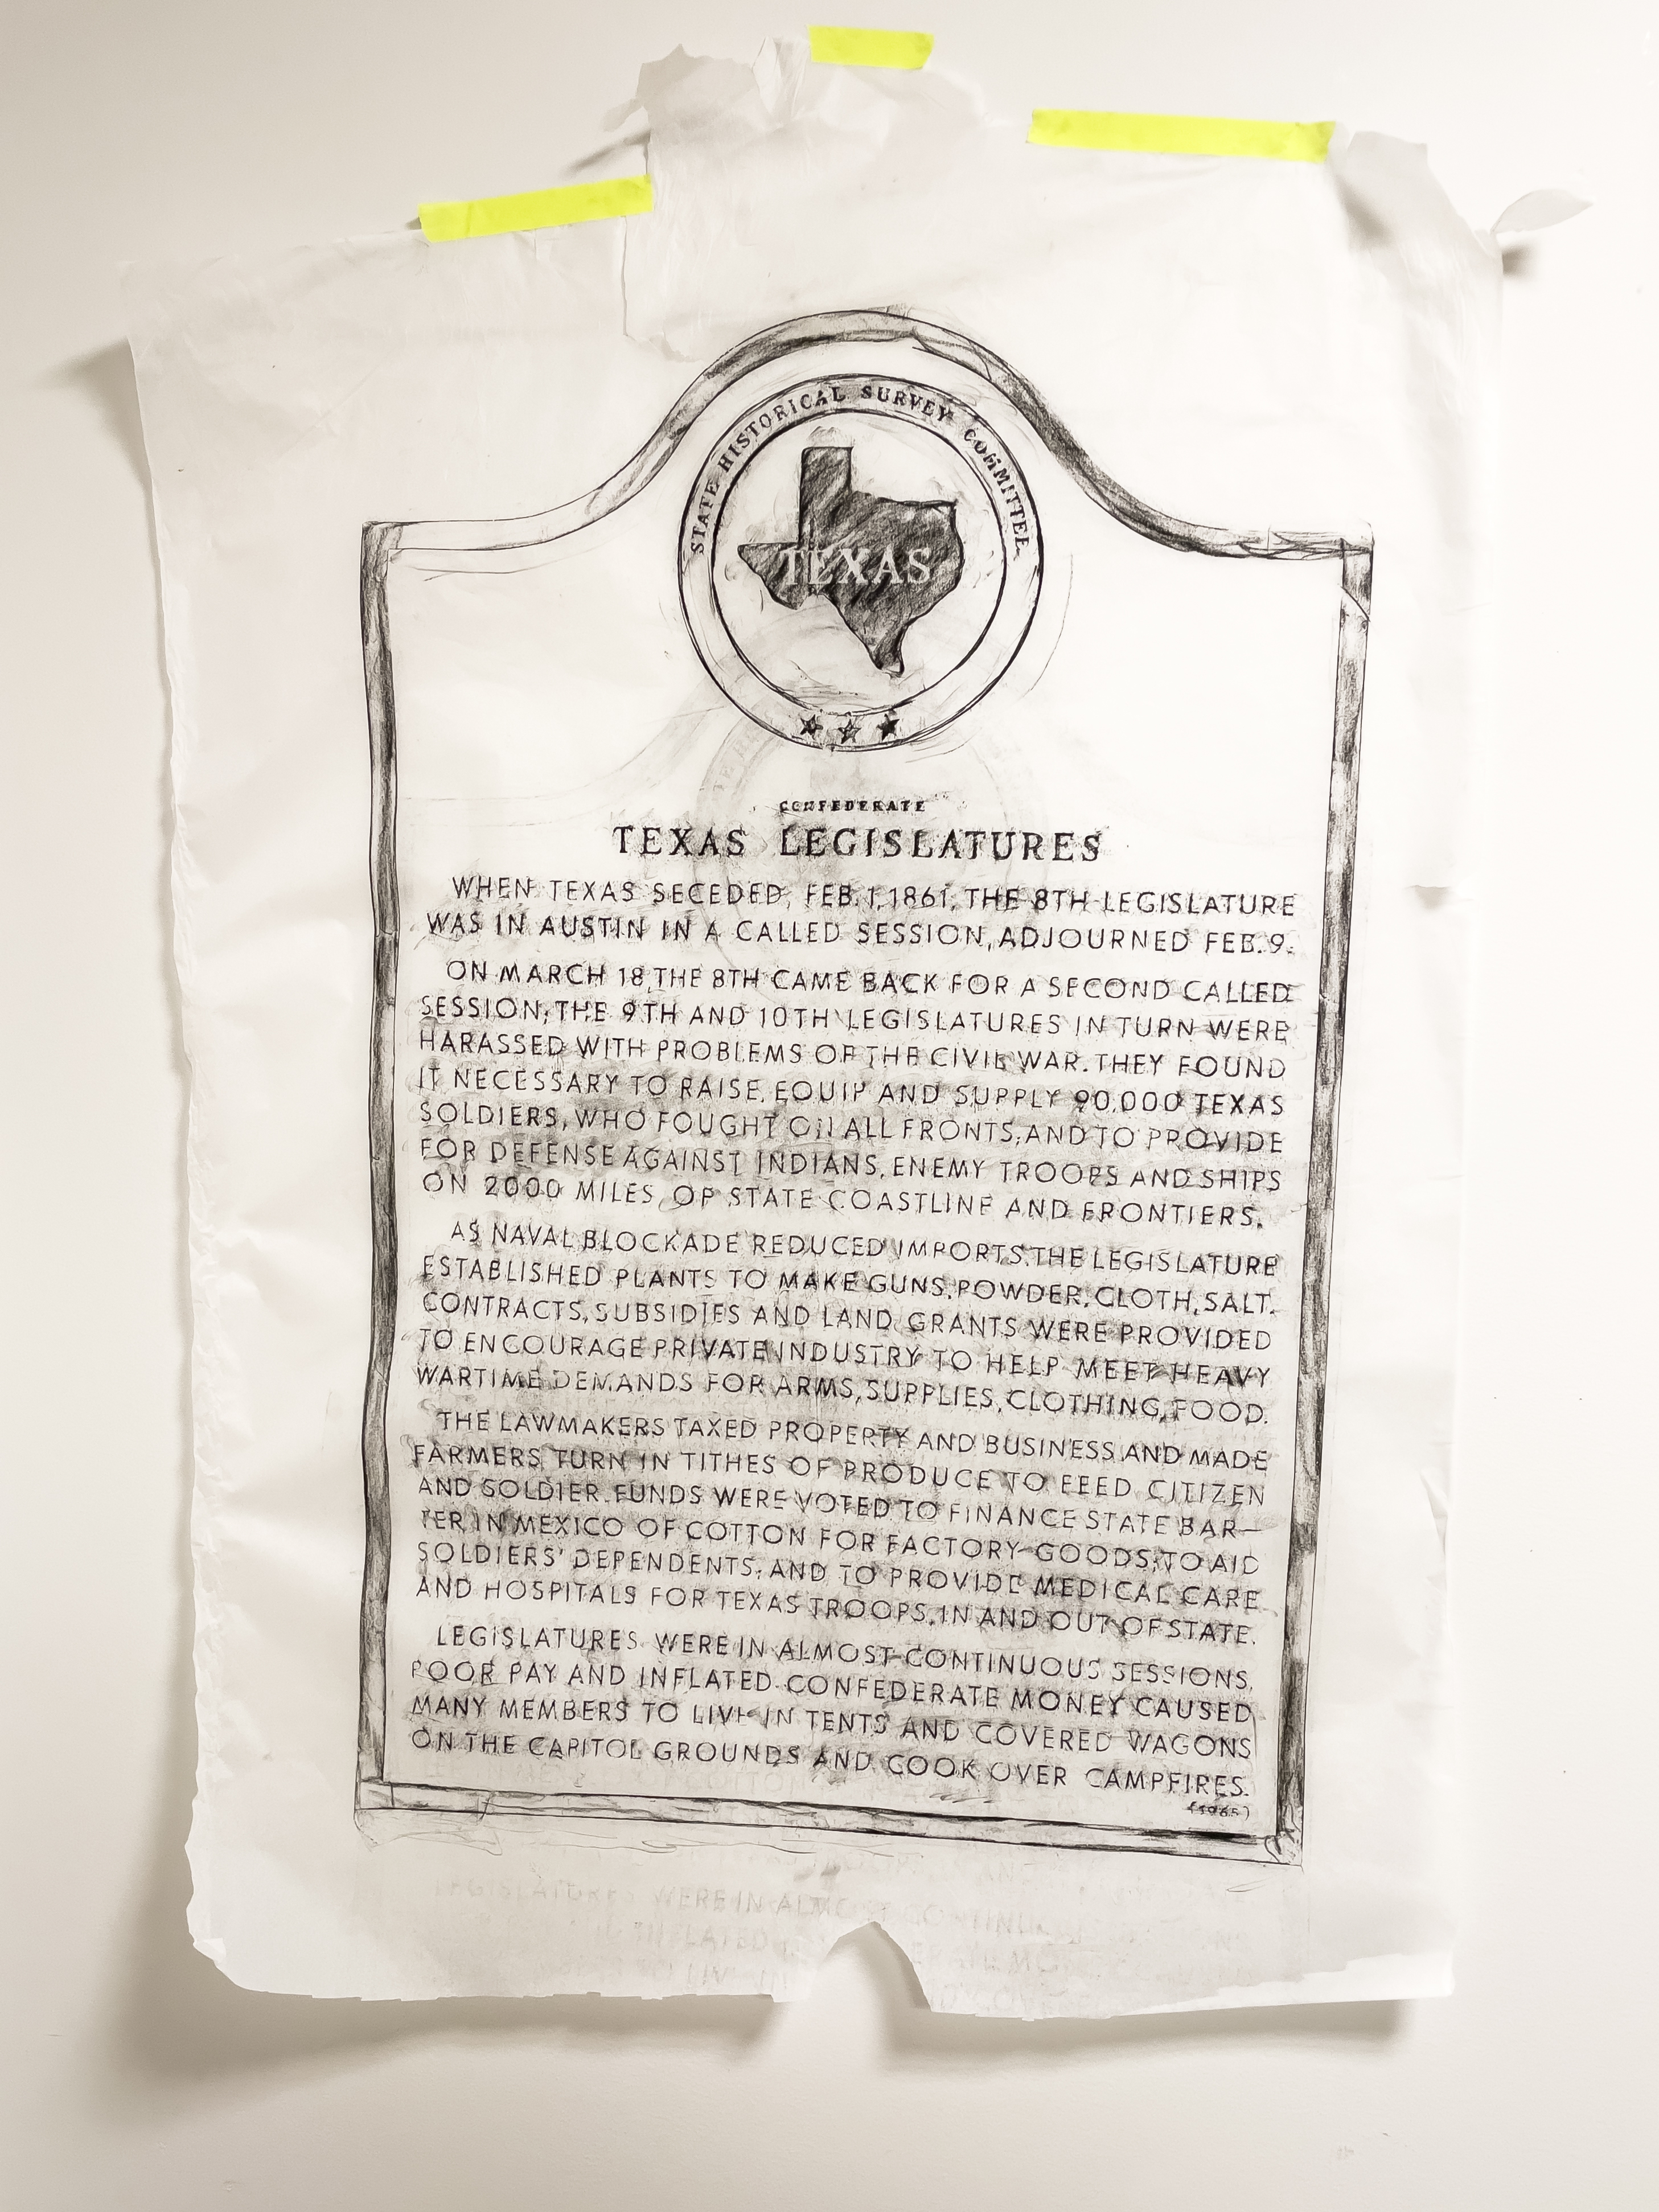 STATE HISTORICAL SURVEY COMMITTEE
TEXAS
CONFEDERATE
TEXAS LEGISLATURES
WHEN TEXAS SECEDED, FEB. 1, 1861, THE 8TH LEGISLATURE
WAS IN AUSTIN IN A CALLED SESSION, ADJOURNED FEB. 9.
ON MARCH 18, THE 8TH CAME BACK FOR A SECOND CALLED
SESSION; THE 9TH AND 10TH LEGISLATURES IN TURN WERE
HARASSED WITH PROBLEMS OF THE CIVIL WAR. THEY FOUND
IT NECESSARY TO RAISE, EQUIP AND SUPPLY 90,000 TEXAS
SOLDIERS, WHO FOUGHT ON ALL FRONTS; AND TO PROVIDE
FOR DEFENSE AGAINST INDIANS, ENEMY TROOPS AND SHIPS
ON 2000 MILES OF STATE COASTLINE AND FRONTIERS.
AS NAVAL BLOCKADE REDUCED IMPORTS, THE LEGISLATURE
ESTABLISHED PLANTS TO MAKE GUNS, POWDER, CLOTH, SALT.
CONTRACTS, SUBSIDIES AND LAND GRANTS WERE PROVIDED
TO ENCOURAGE PRIVATE INDUSTRY TO HELP MEET HEAVY
WARTIME DEMANDS FOR ARMS, SUPPLIES, CLOTHING, FOOD.
THE LAWMAKERS TAXED PROPERTY AND BUSINESS AND MADE
FARMERS TURN IN TITHES OF PRODUCE TO FEED CITIZEN
AND SOLDIER. FUNDS WERE VOTED TO FINANCE STATE BAR-
TER IN MEXICO OF COTTON FOR FACTORY GOODS; TO AID
SOLDIERS' DEPENDENTS; AND TO PROVIDE MEDICAL CARE
AND HOSPITALS FOR TEXAS TROOPS, IN AND OUT OF STATE.
LEGISLATURES WERE IN ALMOST CONTINUOUS SESSIONS.
POOR PAY AND INFLATED CONFEDERATE MONEY CAUSED
MANY MEMBERS TO LIVE IN TENTS AND COVERED WAGONS
ON THE CAPITOL GROUNDS AND COOK OVER CAMPFIRES.
(1965)
LEGISLATURES WERE IN ALMOST